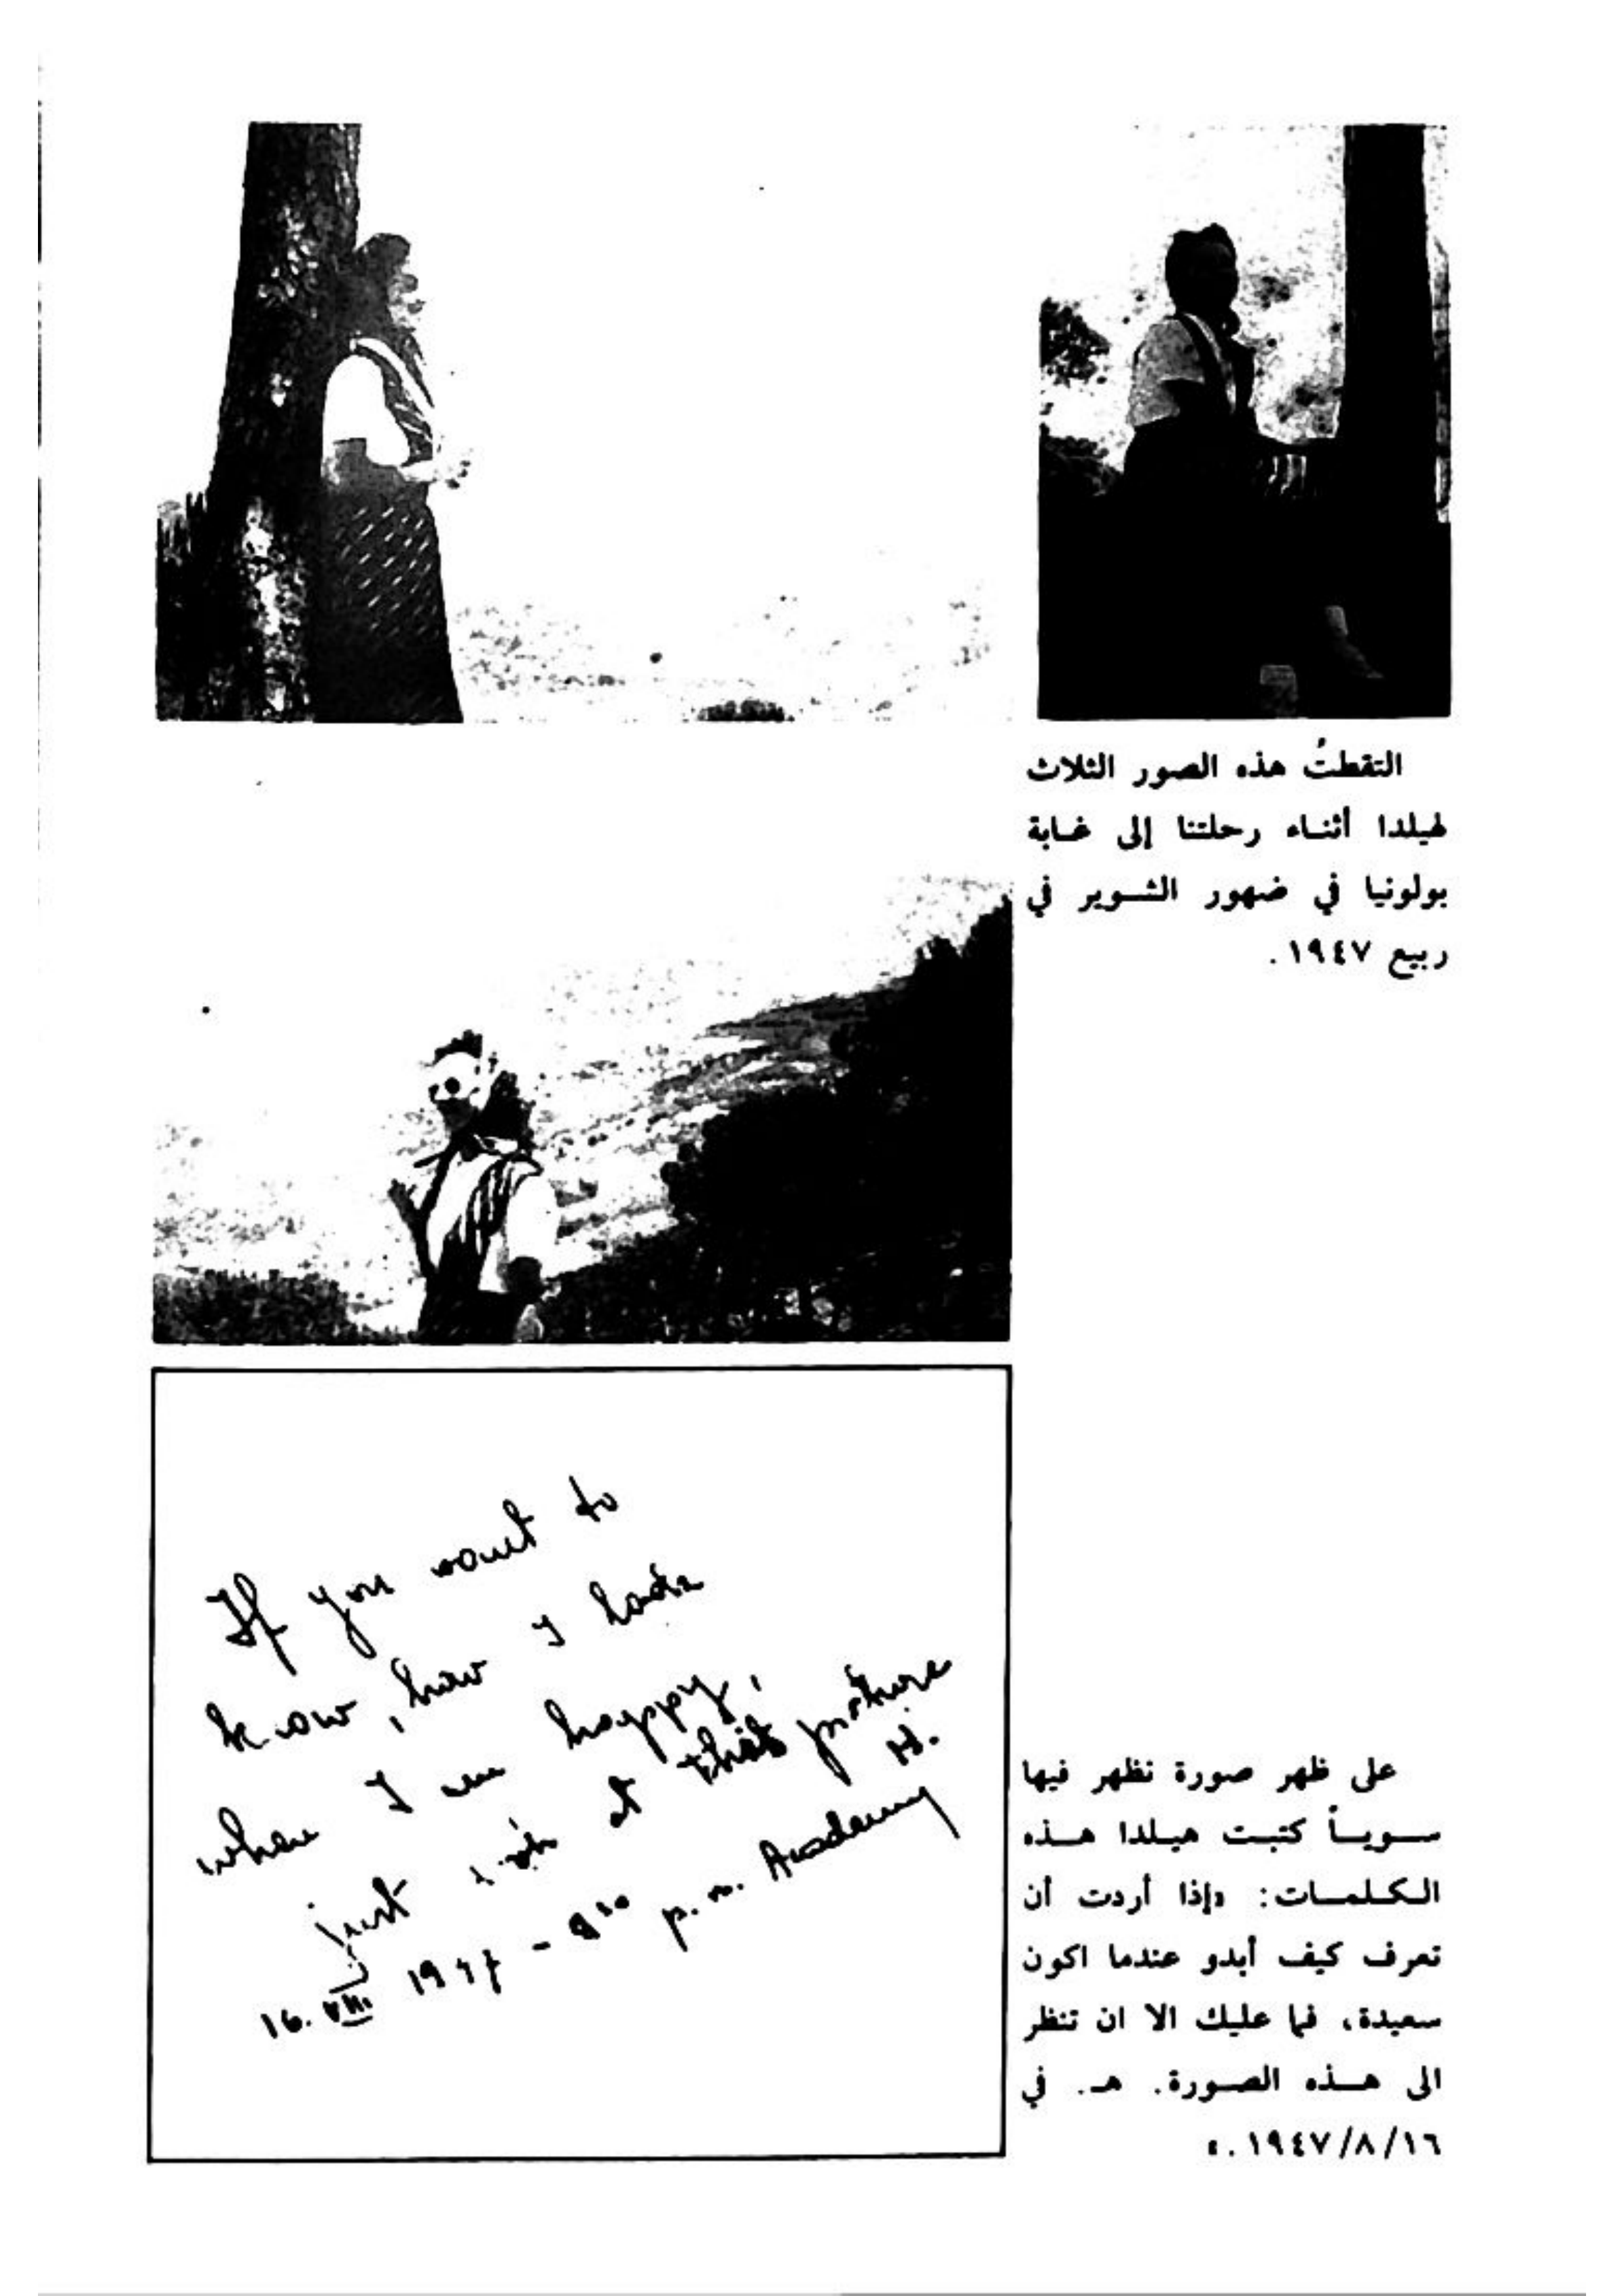 التقطتُ هذه الصور الثلاث
لهيلدا أثناء رحلتنا إلى غابة
بولونيا في ضهور الشوير في
ربيع ١٩٤٧.
If you want to
know, how I look
when I am happy,
just look at this picture
H.
16. VIII 1947 - 9¹⁰ p.m. Academy
على ظهر صورة نظهر فيها
سوياً كتبت هيلدا هذه
الكلمات: «إذا أردت أن
تعرف كيف أبدو عندما اكون
سعيدة، فما عليك الا ان تنظر
الى هذه الصورة. هـ. في
١٦/٨/١٩٤٧.»